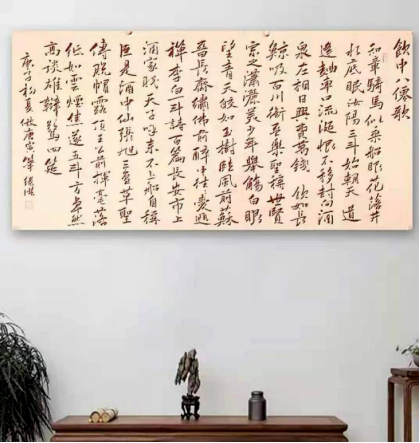 飲中八僊歌
知章騎馬似乘船眼花落井
水底眠汝陽三斗始朝天道
逢麯車口流涎恨不移封向酒
泉左相日興費萬錢飲如長
鯨吸百川銜杯樂聖稱世賢
宗之瀟灑美少年舉觴白眼
望青天皎如玉樹臨風前蘇
晉長齋繡佛前醉中往愛逃
禪李白斗詩百篇長安市上
酒家眠天子呼來不上船自稱
臣是酒中仙張旭三杯草聖
傳脫帽露頂王公前揮毫落
紙如雲煙焦遂五斗方卓然
高談雄辯驚四筵
庚子初夏唐寅筆